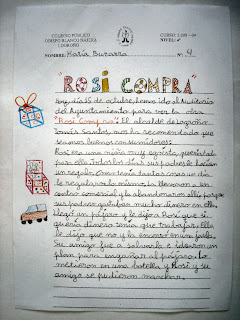 COLEGIO PÚBLICO
OBISPO BLANCO NÁJERA
LOGROÑO
CURSO: 2.008 - 09
NIVEL: 4º
NOMBRE: María Bezares n. 4
"ROSI COMPRA"
Hoy, día 15 de octubre, hemo ido al Auditorio
del Ayuntamiento para ver la obra
"Rosi Compra". El alcalde de Logroño
Tomás Santos, nos ha recomendado que
seamos buenos consumidores.
Rosi era una niña muy egoista, quería tal
para ella. Todos los días sus padres le hacían
un regalo. Como tenía tantas cosas un día
le regalaron lo mismo. La llevaron a un
centro comercial y la abandonaron allí, porque
sus padres gastaban mucho dinero en ella.
Llegó un pájaro y le dijo a Rosi que si
quería dinero tenía que trabajar. Ella
le dijo que no y la encerró en una jaula.
Su amigo fue a salvarla e idearon un
plan para engañar al pájaro: lo
metieron en una botella y Rosi y su
amigo se pudieron marchar.